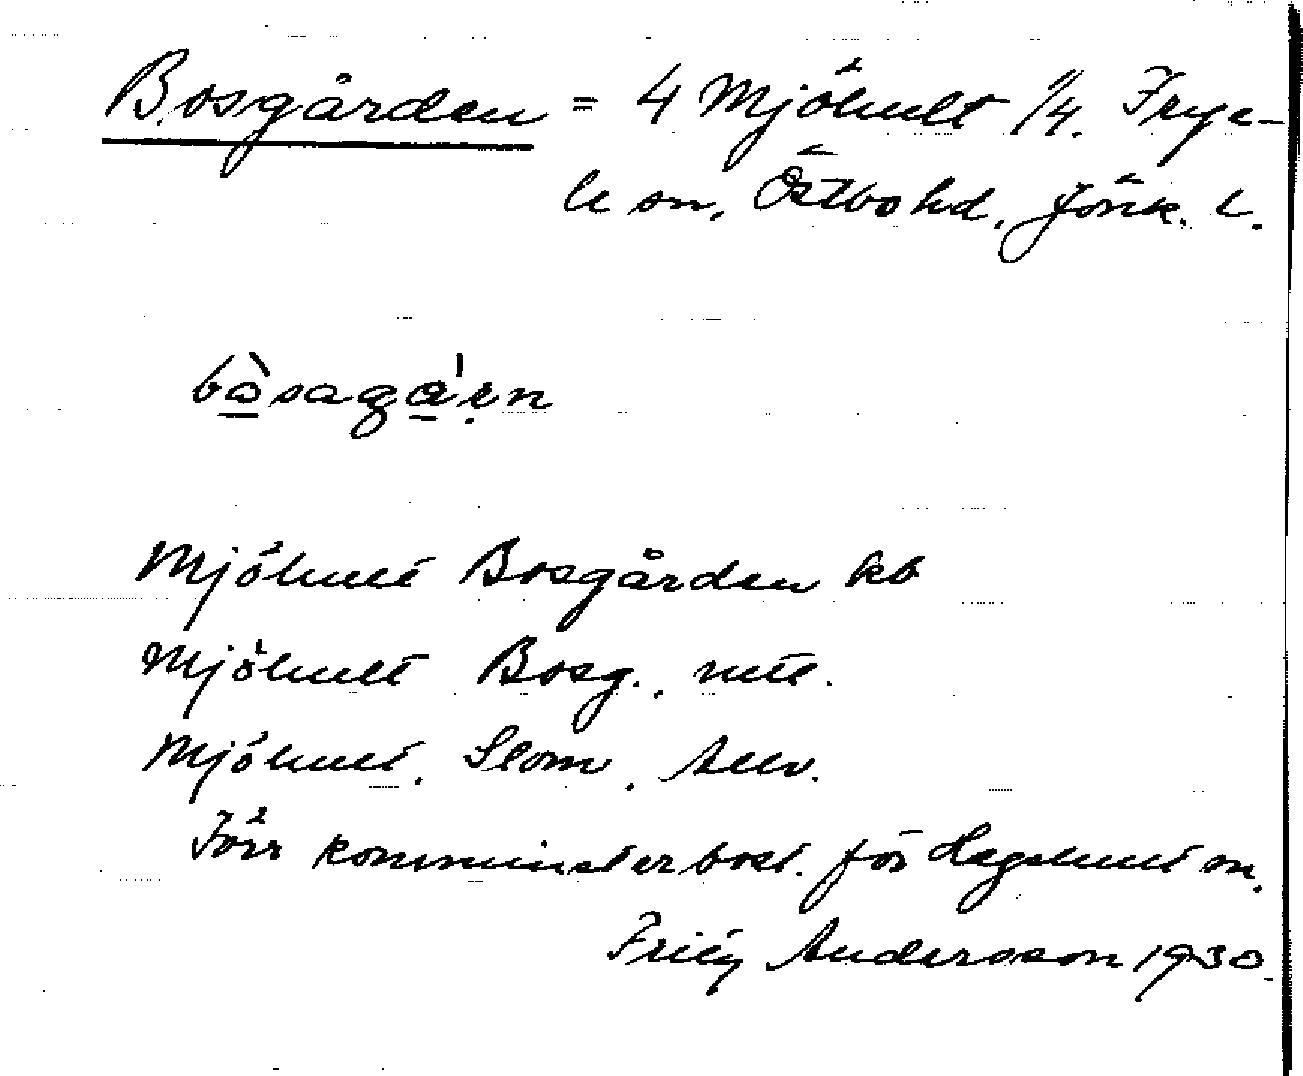 Bosgården = 4 Mjöhult 1/4. Frye-
le sn, Östbo hd, Jönk. l.
bòsagá'ṛn
Mjöhult Bosgården kb
Mjöhult Bosg., mtl.
Mjöhult, Slom,
Förr komministerbost. för Hagshult sn.
Fritz Andersson 1930